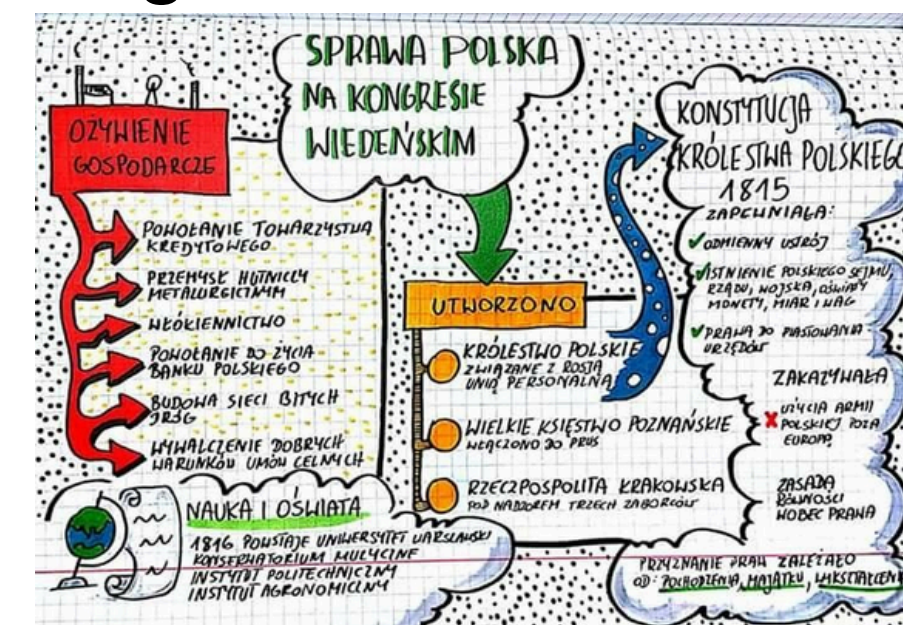 SPRAWA POLSKA
NA KONGRESIE
WIEDEŃSKIM
OŻYWIENIE
GOSPODARCZE
POWOŁANIE TOWARZYSTWA
KREDYTOWEGO
PRZEMYSŁ HUTNICZY
METALURGICZNYM
WŁÓKIENNICTWO
POWOŁANIE DO ŻYCIA
BANKU POLSKIEGO
BUDOWA SIECI BITYCH
DRÓG
WYWALCZENIE DOBRYCH
WARUNKÓW UMÓW CELNYCH
NAUKA I OŚWIATA
1816 POWSTAJE UNIWERSYTET WARSZAWSKI
KONSERWATORIUM MUZYCZNE
INSTYTUT POLITECHNICZNY
INSTYTUT AGRONOMICZNY
UTWORZONO
KRÓLESTWO POLSKIE
ZWIĄZANE Z ROSJĄ
UNIĄ PERSONALNĄ
WIELKIE KSIĘSTWO POZNAŃSKIE
WŁĄCZONO DO PRUS
RZECZPOSPOLITA KRAKOWSKA
POD NADZOREM TRZECH ZABORCÓW
KONSTYTUCJA
KRÓLESTWA POLSKIEGO
1815
ZAPEWNIAŁA:
ODMIENNY USTRÓJ
ISTNIENIE POLSKIEGO SEJMU,
RZĄDU, WOJSKA, OŚWIATY
MONETY, MIAR I WAG
PRAWA DO PIASTOWANIA
URZĘDÓW
ZAKAZYWAŁA
UŻYCIA ARMII
POLSKIEJ POZA
EUROPĄ
ZASADA
RÓWNOŚCI
WOBEC PRAWA
PRZYZNANIE PRAW ZALEŻAŁO
OD: POCHODZENIA, MAJĄTKU, WYKSZTAŁCENI